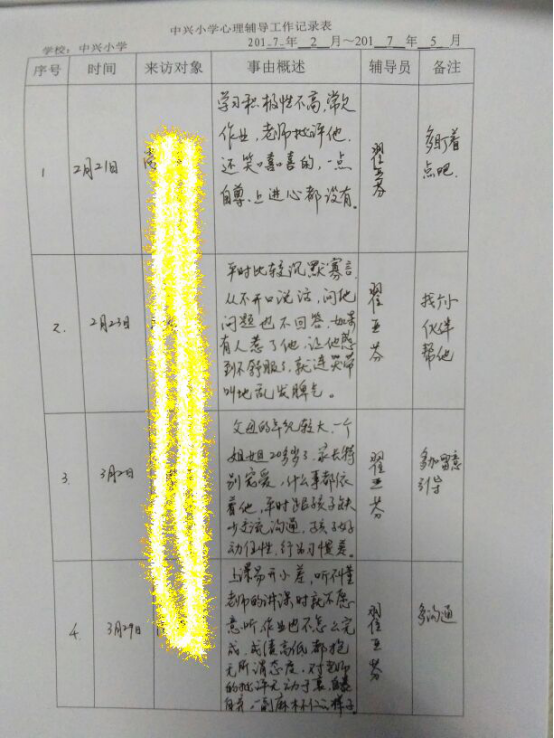 中兴小学心理辅导工作记录表
学校：中兴小学 2017年2月～2017年5月
序号 时间 来访对象 事由概述 辅导员 备注
1 2月21日 翟亚芬
学习积极性不高，常欠
作业，老师批评他，
还笑嘻嘻的，一点
自尊、上进心都没有。
多盯着
点吧.
2. 2月23日 翟亚芬
平时比较沉默寡言，
从不开口说话，问他
问题也不回答，如果
有人惹了他，让他感
到不舒服了，就连哭带
叫地乱发脾气。
找个小
伙伴
帮他
3. 3月2日 翟亚芬
父母的年纪较大，一个
姐姐20多岁了，家长特
别宠爱，什么事都依
着他，平时跟孩子缺
少交流沟通，孩子好
动任性，行为习惯差。
多加留意
引导
4. 3月29日 翟亚芬
上课易开小差，听不懂
老师的讲课时就不愿
意听，作业也不怎么完
成，成绩高低都抱
无所谓态度，对老师
的批评无动于衷，
一副麻木不仁的样子
多沟通